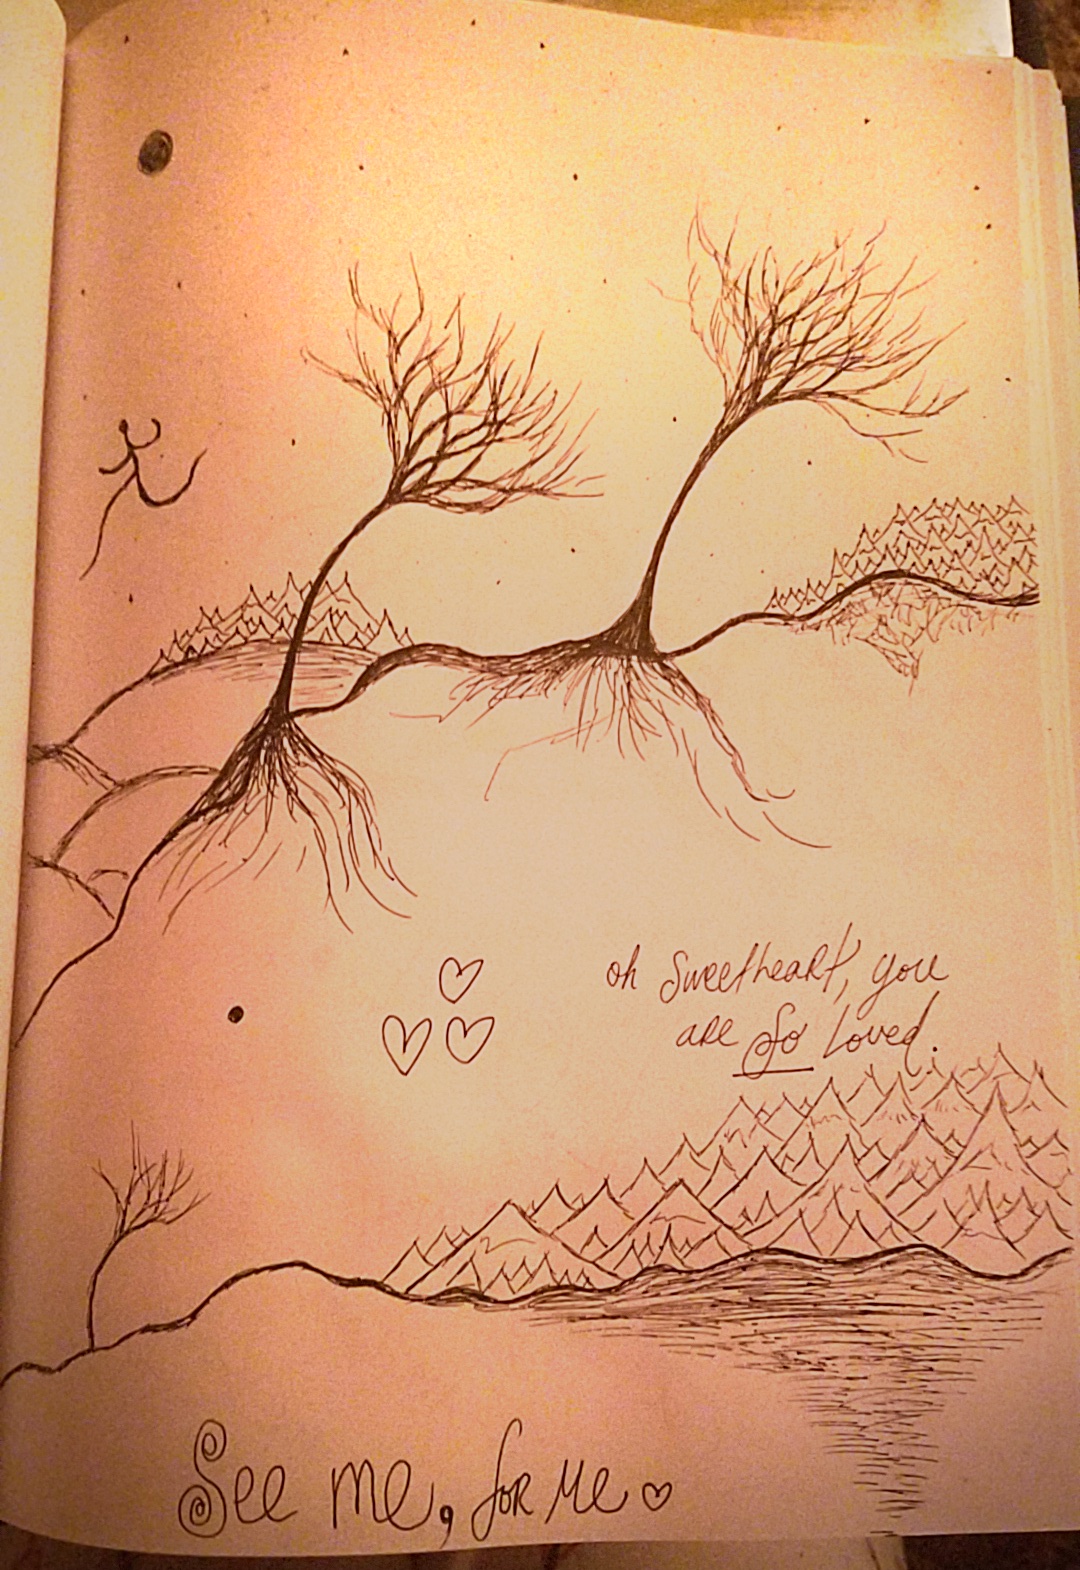 oh sweetheart, you
are So loved.
See me, for me